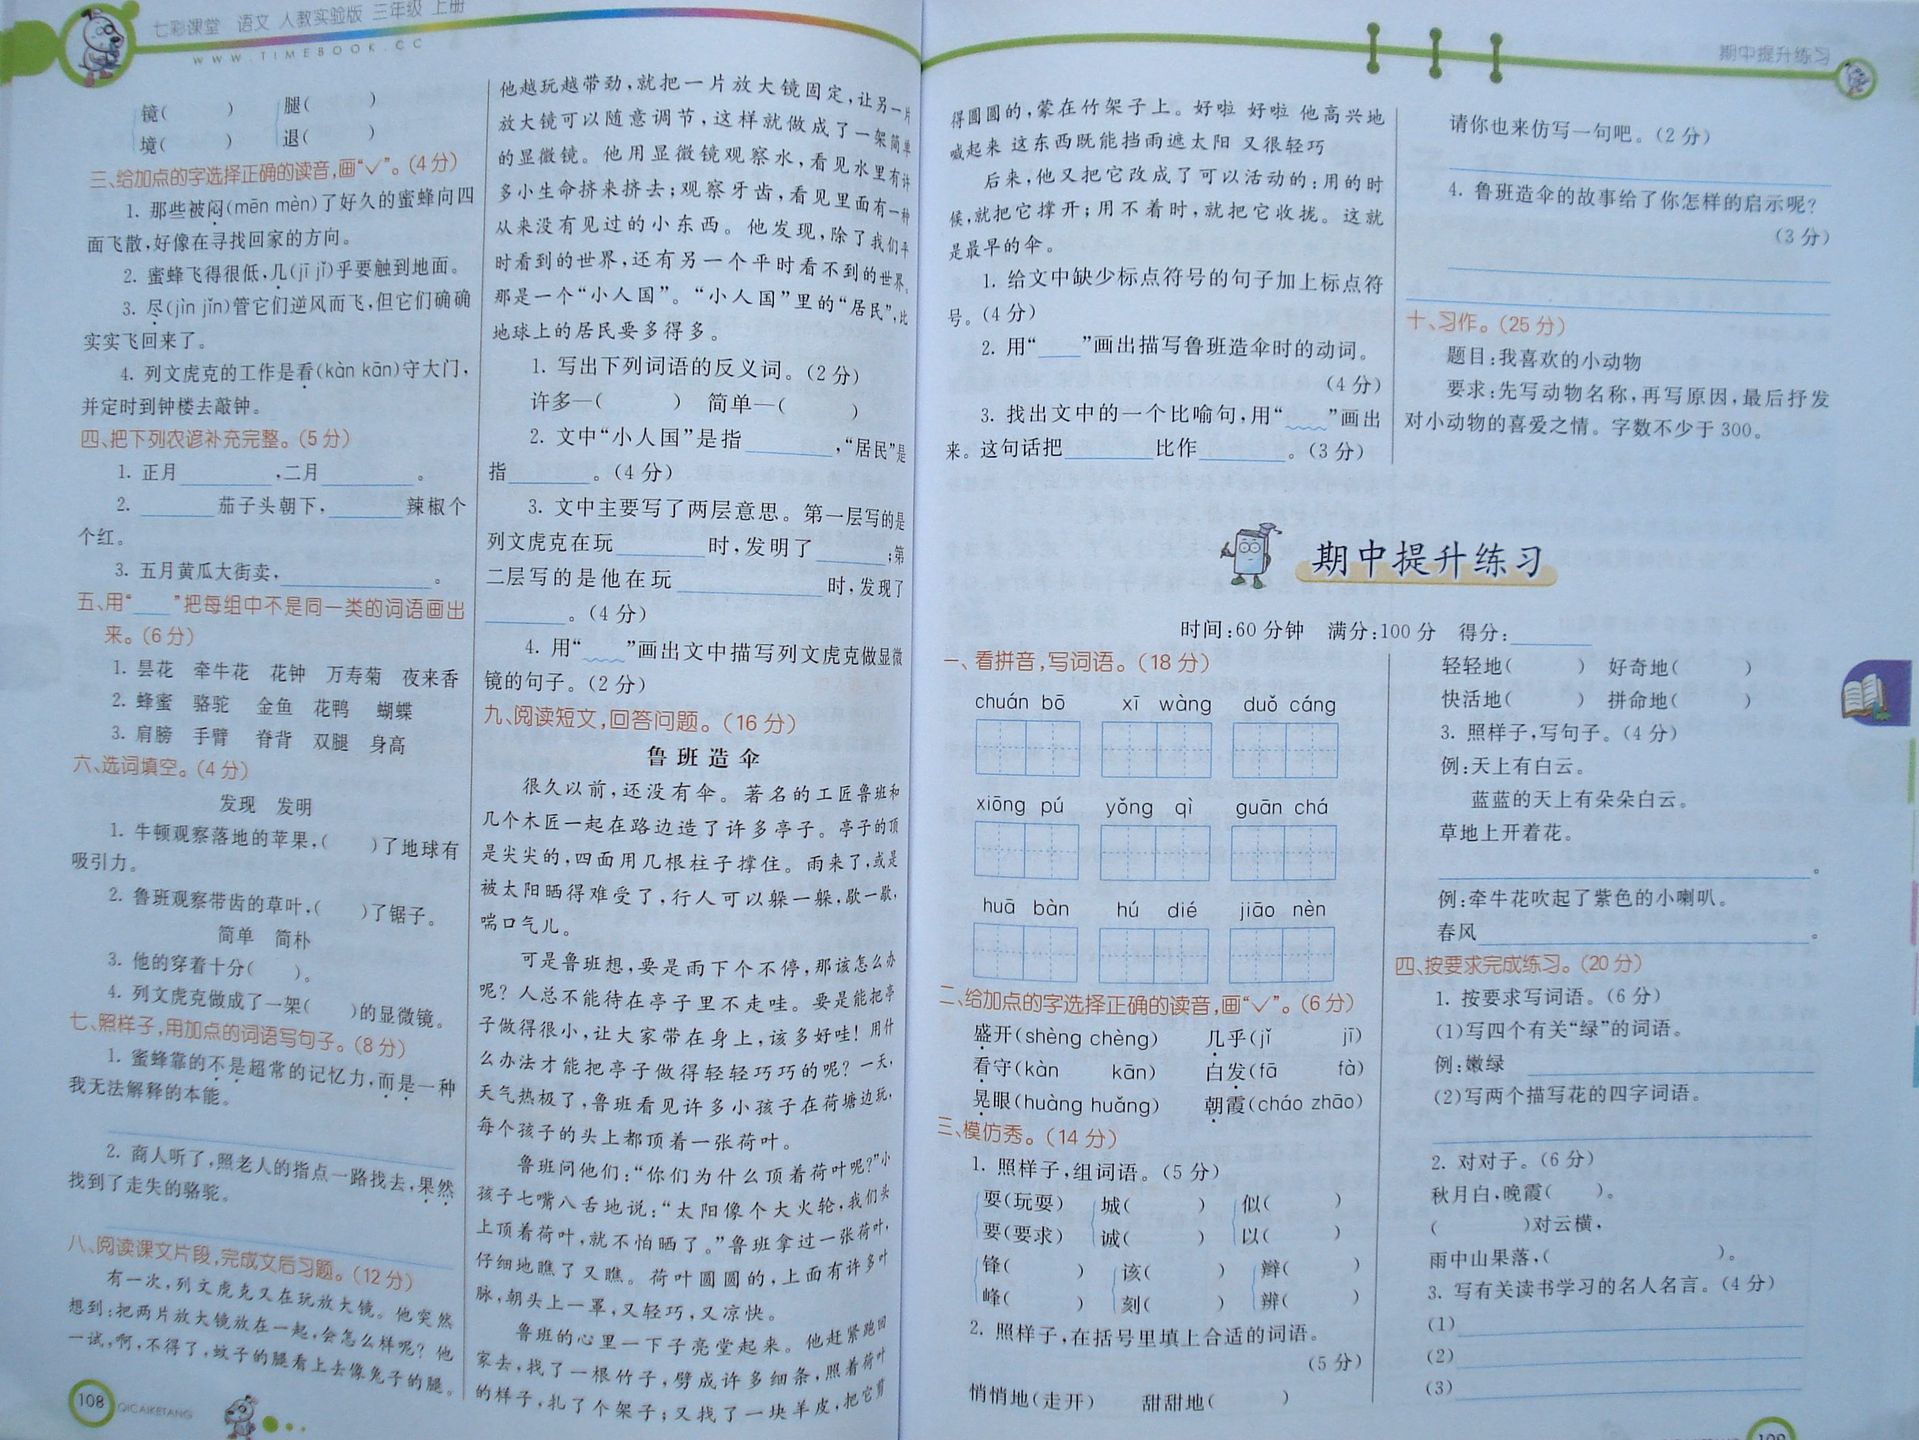 七彩课堂 语文 人教实验版 三年级 上册
WWW.TIMEBOOK.CC
镜( ) 腿( )
境( ) 退( )
三、给加点的字选择正确的读音,画“✓”。(4分)
1. 那些被闷(mēn mèn)了好久的蜜蜂向四
面飞散,好像在寻找回家的方向。
2. 蜜蜂飞得很低,几(jī jǐ)乎要触到地面。
3. 尽(jìn jǐn)管它们逆风而飞,但它们确确
实实飞回来了。
4. 列文虎克的工作是看(kàn kān)守大门,
并定时到钟楼去敲钟。
四、把下列农谚补充完整。(5分)
1. 正月________,二月________。
2. ________茄子头朝下,________辣椒个
个红。
3. 五月黄瓜大街卖,________。
五、用“____”把每组中不是同一类的词语画出
来。(6分)
1. 昙花 牵牛花 花钟 万寿菊 夜来香
2. 蜂蜜 骆驼 金鱼 花鸭 蝴蝶
3. 肩膀 手臂 脊背 双腿 身高
六、选词填空。(4分)
发现 发明
1. 牛顿观察落地的苹果,( )了地球有
吸引力。
2. 鲁班观察带齿的草叶,( )了锯子。
简单 简朴
3. 他的穿着十分( )。
4. 列文虎克做成了一架( )的显微镜。
七、照样子,用加点的词语写句子。(8分)
1. 蜜蜂靠的不是超常的记忆力,而是一种
我无法解释的本能。
2. 商人听了,照老人的指点一路找去,果然
找到了走失的骆驼。
八、阅读课文片段,完成文后习题。(12分)
有一次,列文虎克又在玩放大镜。他突然
想到:把两片放大镜放在一起,会怎么样呢?他
一试,啊,不得了,蚊子的腿看上去像兔子的腿。
108 QICAIKETANG
他越玩越带劲,就把一片放大镜固定,让另一片
放大镜可以随意调节,这样就做成了一架简单
的显微镜。他用显微镜观察水,看见水里有许
多小生命挤来挤去;观察牙齿,看见里面有一种
从来没有见过的小东西。他发现,除了我们平
时看到的世界,还有另一个平时看不到的世界。
那是一个“小人国”。“小人国”里的“居民”,比
地球上的居民要多得多。
1. 写出下列词语的反义词。(2分)
许多—( ) 简单—( )
2. 文中“小人国”是指________,“居民”是
指________。(4分)
3. 文中主要写了两层意思。第一层写的是
列文虎克在玩________时,发明了________;第
二层写的是他在玩________时,发现了
________。(4分)
4. 用“____”画出文中描写列文虎克做显微
镜的句子。(2分)
九、阅读短文,回答问题。(16分)
鲁班造伞
很久以前,还没有伞。著名的工匠鲁班和
几个木匠一起在路边造了许多亭子。亭子的顶
是尖尖的,四面用几根柱子撑住。雨来了,或是
被太阳晒得难受了,行人可以躲一躲,歇一歇,
喘口气儿。
可是鲁班想,要是雨下个不停,那该怎么办
呢?人总不能待在亭子里不走哇。要是能把亭
子做得很小,让大家带在身上,该多好哇!用什
么办法才能把亭子做得轻轻巧巧的呢?一天,
天气热极了,鲁班看见许多小孩子在荷塘边玩,
每个孩子的头上都顶着一张荷叶。
鲁班问他们:“你们为什么顶着荷叶呢?”小
孩子七嘴八舌地说:“太阳像个大火轮,我们头
上顶着荷叶,就不怕晒了。”鲁班拿过一张荷叶,
仔细地瞧了又瞧。荷叶圆圆的,上面有许多叶
脉,朝头上一罩,又轻巧,又凉快。
鲁班的心里一下子亮堂起来。他赶紧跑回
家去,找了一根竹子,劈成许多细条,照着荷叶
的样子,扎了个架子;又找了一块羊皮,把它剪
期中提升练习
得圆圆的,蒙在竹架子上。好啦 好啦 他高兴地
喊起来 这东西既能挡雨遮太阳 又很轻巧
后来,他又把它改成了可以活动的:用的时
候,就把它撑开;用不着时,就把它收拢。这就
是最早的伞。
1. 给文中缺少标点符号的句子加上标点符
号。(4分)
2. 用“____”画出描写鲁班造伞时的动词。
(4分)
3. 找出文中的一个比喻句,用“____”画出
来。这句话把________比作________。(3分)
请你也来仿写一句吧。(2分)
4. 鲁班造伞的故事给了你怎样的启示呢?
(3分)
十、习作。(25分)
题目:我喜欢的小动物
要求:先写动物名称,再写原因,最后抒发
对小动物的喜爱之情。字数不少于300。
期中提升练习
时间:60分钟 满分:100分 得分:________
一、看拼音,写词语。(18分)
chuán bō xī wàng duǒ cáng
xiōng pú yǒng qì guān chá
huā bàn hú dié jiāo nèn
二、给加点的字选择正确的读音,画“✓”。(6分)
盛开(shèng chèng) 几乎(jǐ jī)
看守(kàn kān) 白发(fā fà)
晃眼(huàng huǎng) 朝霞(cháo zhāo)
三、模仿秀。(14分)
1. 照样子,组词语。(5分)
耍(玩耍) 城( ) 似( )
要(要求) 诚( ) 以( )
锋( ) 该( ) 辫( )
峰( ) 刻( ) 辨( )
2. 照样子,在括号里填上合适的词语。
(5分)
悄悄地(走开) 甜甜地( )
轻轻地( ) 好奇地( )
快活地( ) 拼命地( )
3. 照样子,写句子。(4分)
例:天上有白云。
蓝蓝的天上有朵朵白云。
草地上开着花。
________。
例:牵牛花吹起了紫色的小喇叭。
春风________。
四、按要求完成练习。(20分)
1. 按要求写词语。(6分)
(1)写四个有关“绿”的词语。
例:嫩绿 ________
(2)写两个描写花的四字词语。
2. 对对子。(6分)
秋月白,晚霞( )。
( )对云横,
雨中山果落,( )。
3. 写有关读书学习的名人名言。(4分)
(1)________
(2)________
(3)________